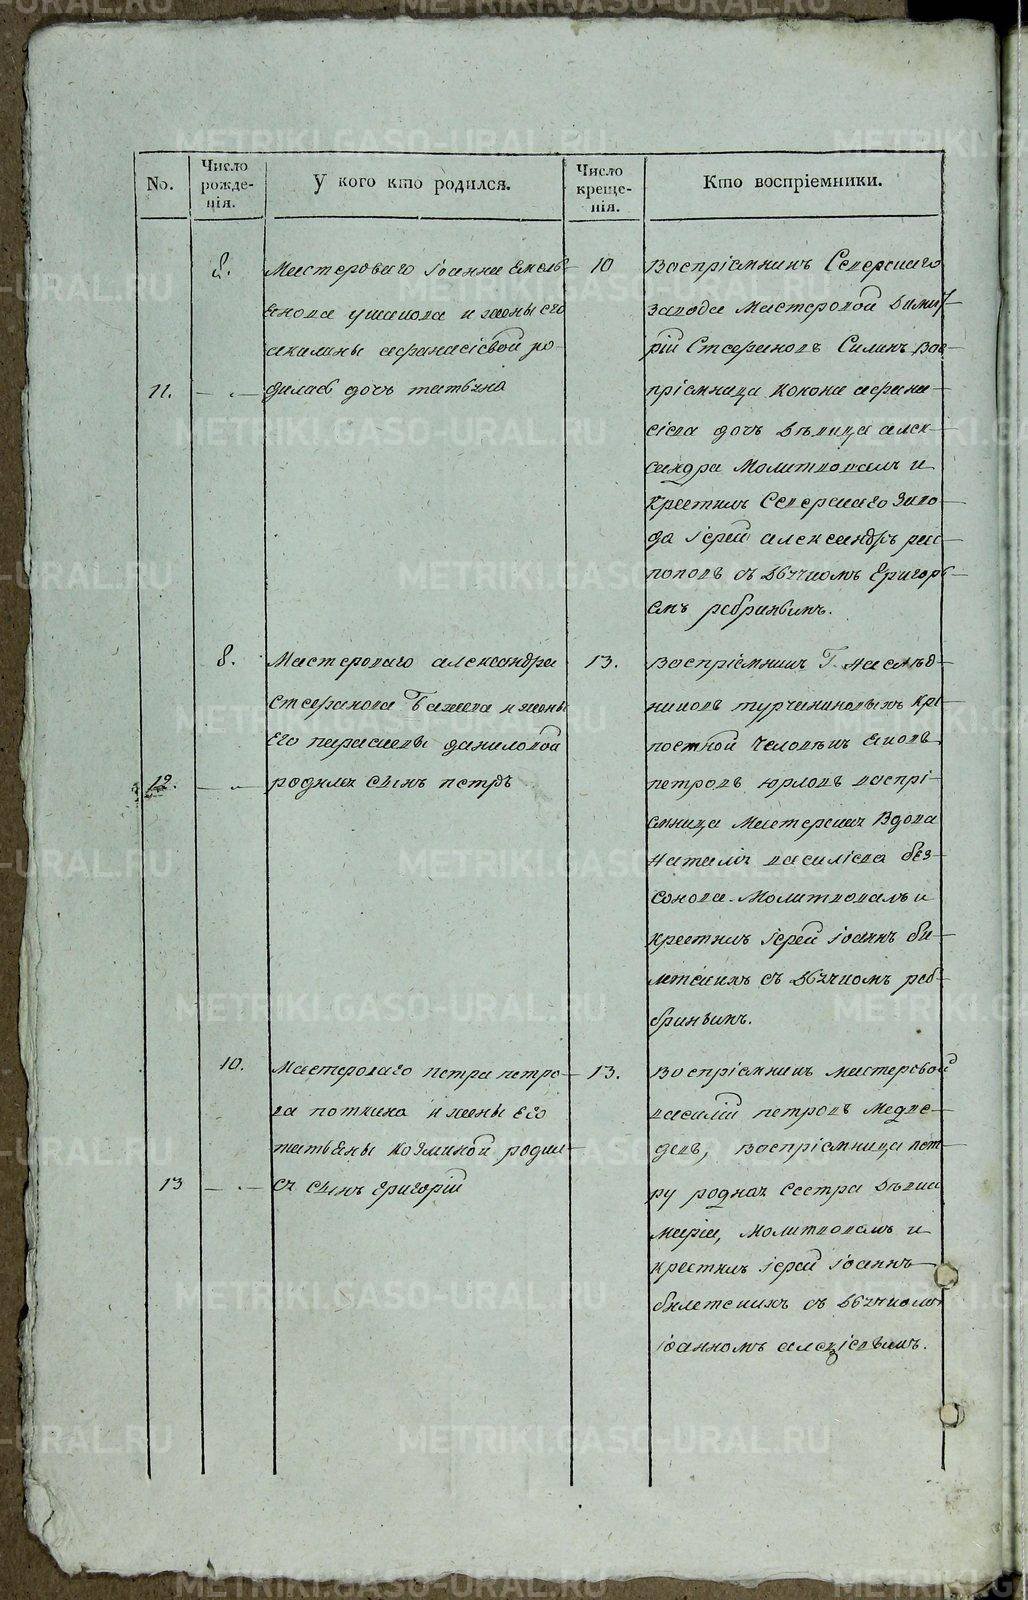 No.
Число рожде-нія.
У кого кто родился.
Число креще-нія.
Кто воспріемники.
8.
Мастероваго Іоанна Емель-
янова Ушакова и жены его
акилины афанасіевой ро-
11.
дилась дочь татьяна
10
Воспріемникъ Северскаго
завода Мастеровой Димит-
рій Стефановъ Силинъ Вос-
пріемница кокона афана-
сіева дочь Дѣвица алек-
сандра Молитвовалъ и
крестилъ Северскаго Заво-
да іерей александръ рас-
поповъ съ Дьячкомъ Григорь-
емъ ребринымъ.
8.
Мастероваго александра
стефанова Бажева и жены
Его парасковьи даниловой
12.
родился сынъ петръ
13.
Воспріемникъ Г. наслѣд-
никовъ турчаниновыхъ кре
постной человѣкъ Яковъ
петровъ юрловъ воспрі-
емница Мастерская Вдова
Наталья василіева без-
сонова. Молитвовалъ и
крестилъ іерей іоаннъ би-
летскихъ съ Дьячкомъ реб-
ринымъ.
10.
Мастероваго петра петро-
ва поткина и жены Его
татьяны козминой родил-
13
ся сынъ Григорій
13.
Воспріемникъ мастеровой
василій петровъ Медве-
девъ, воспріемница пет-
ру родная сестра Дѣвка
марія, Молитвовалъ и
крестилъ іерей іоаннъ
билетскихъ съ Дьячкомъ
іоанномъ алексіевымъ.
METRIKI.GASO-URAL.RU